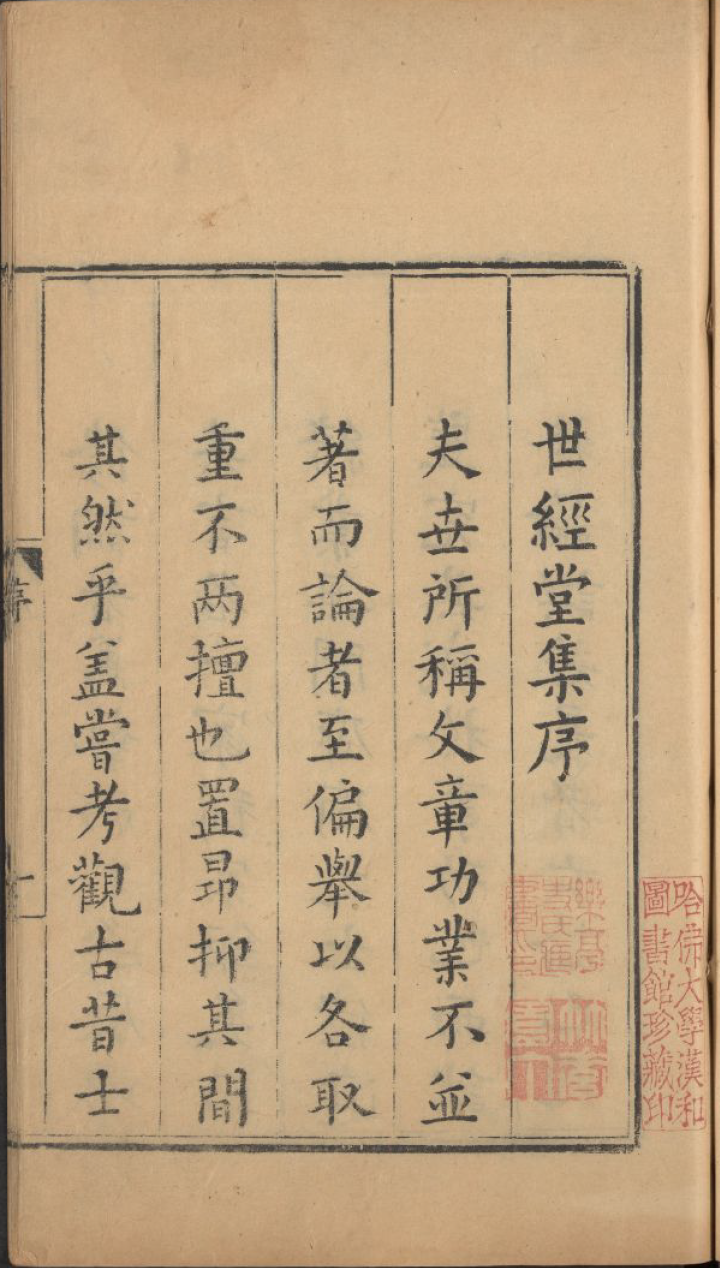 世經堂集序
夫世所稱文章功業不並
著而論者至偏舉以各取
重不两擅也置昂抑其間
其然乎盖嘗考觀古昔士
序
一
哈佛大學漢和
圖書館珍藏印